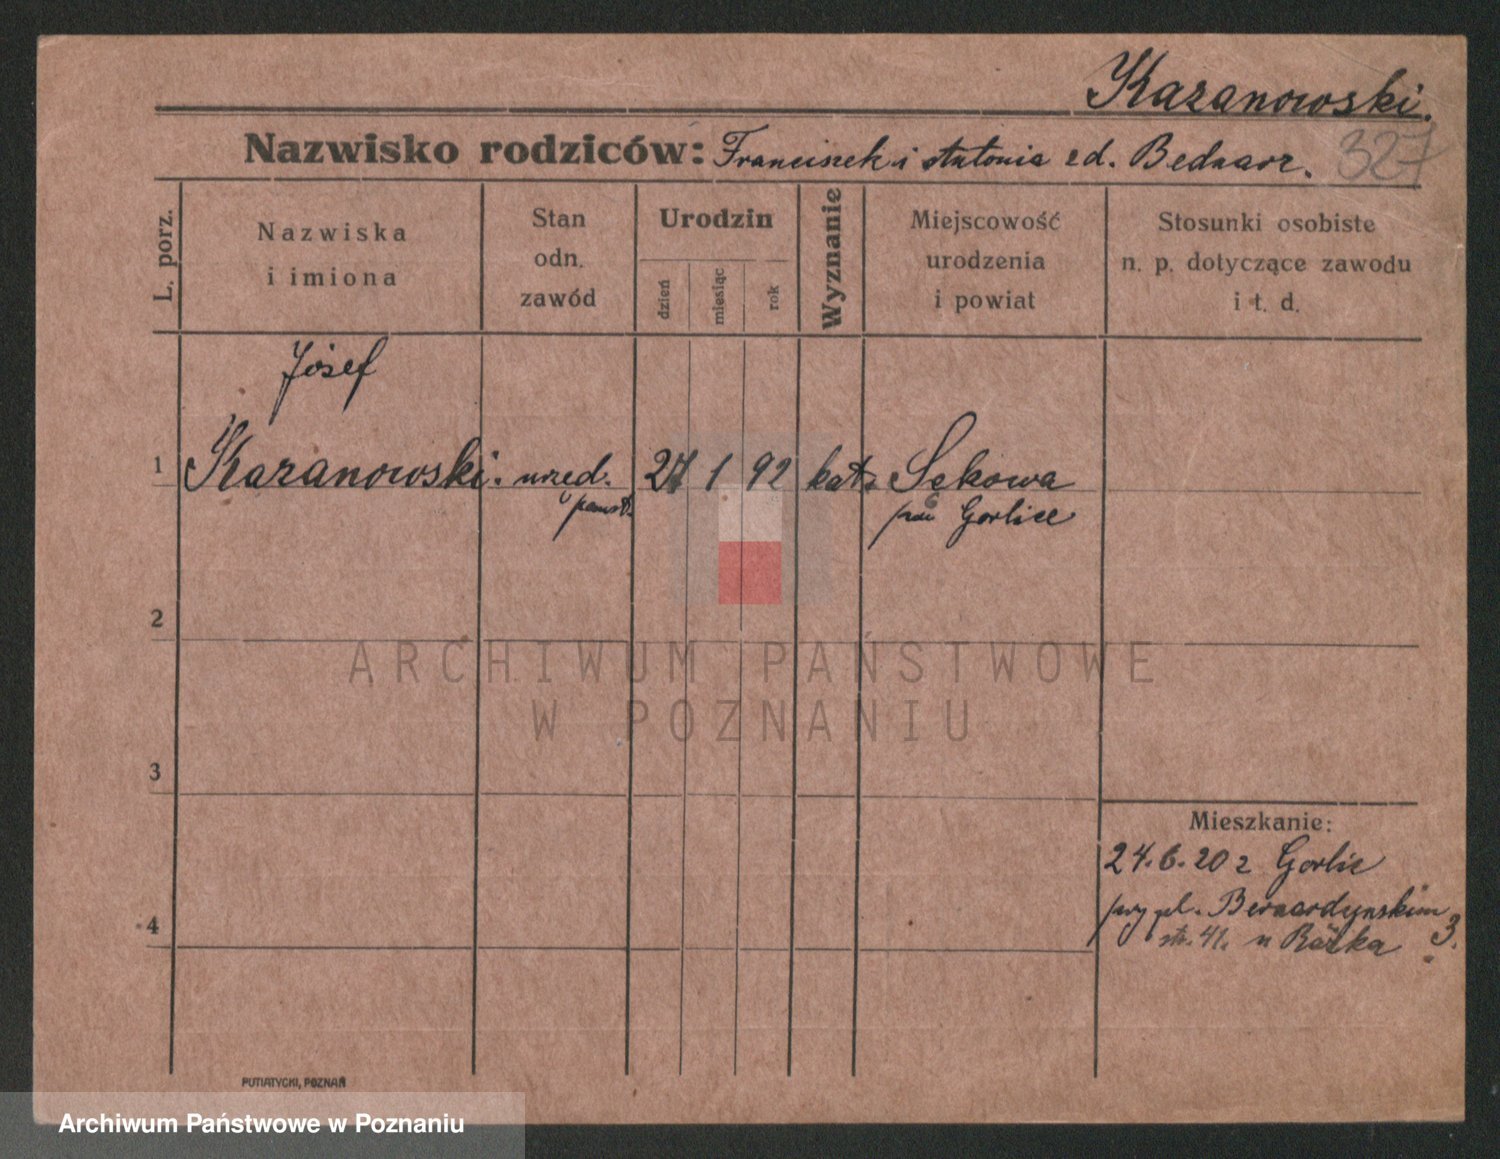 Kazanowski.
Nazwisko rodziców: Franciszek i Antonia z d. Bednarz.
327
L. porz.
Nazwiska
i imiona
Stan
odn.
zawód
Urodzin
dzień
miesiąc
rok
Wyznanie
Miejscowość
urodzenia
i powiat
Stosunki osobiste
n. p. dotyczące zawodu
i t. d.
Józef
1 Kazanowski. urzęd. 27 1 92 kat. Sękowa
państ. Gorlice
2
ARCHIWUM PAŃSTWOWE
W POZNANIU
3
Mieszkanie:
24.6.20 z Gorlic
przy pl. Bernardyńskim 3.
4
str. 41. u
PUTIATYCKI, POZNAŃ
Archiwum Państwowe w Poznaniu